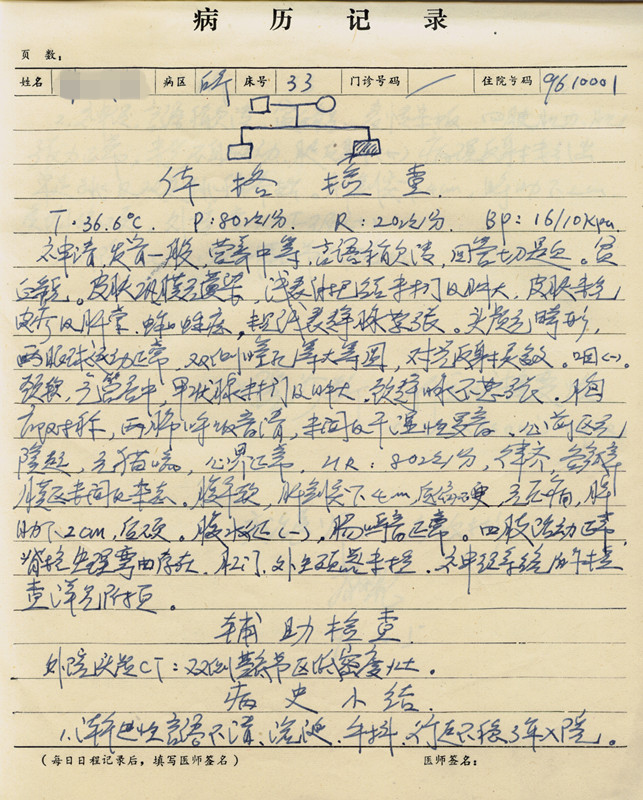 病历记录
页数：
姓名 病区 床号 33 门诊号码 / 住院号码 9610001
体格检查
T：36.6℃ P：80次/分 R：20次/分 BP：16/10Kpa
神清，发育一般，营养中等，言语稍欠清，回答切题。贫
血貌。皮肤巩膜无黄染，浅表淋巴结未扪及肿大，皮肤未见
皮疹及肝掌、蜘蛛痣，静脉
两眼球运动正常，双侧瞳孔等大等圆，对光反射灵敏。咽(-)
颈软，气管居中，甲状腺未扪及肿大，颈静脉不怒张。胸
部对称，两肺呼吸音清，未闻及干湿性罗音。心前区无
隆起，无猫喘，心界正常，HR：80次/分，律齐，各瓣
膜区未闻及杂音。腹平软，肝剑突下4cm质偏硬，无压痛，脾
肋下2cm，质硬。腹水征(-)，肠鸣音正常。四肢活动正常，
脊柱生理弯曲存在，肛门、外生殖器未检。神经系统的检
查详见附页。
辅助检查
外院头颅CT：双侧基底节区低密度灶。
病史小结
1.渐进性言语不清、流涎、手抖、行走不稳3年入院。
（每日日程记录后，填写医师签名） 医师签名：